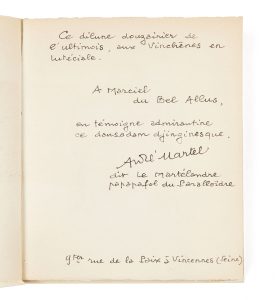 Ce dilune dougeirier de
l'ultimois, aux Vinchênes en
lutéciale.
A Marciel
du Bel Allus,
en témoigne admirautine
ce dousadom djinginesque,
André Martel
dit le Martélandre
papapafol du Paralloïdre
9ter rue de la Paix à Vincennes (Seine)